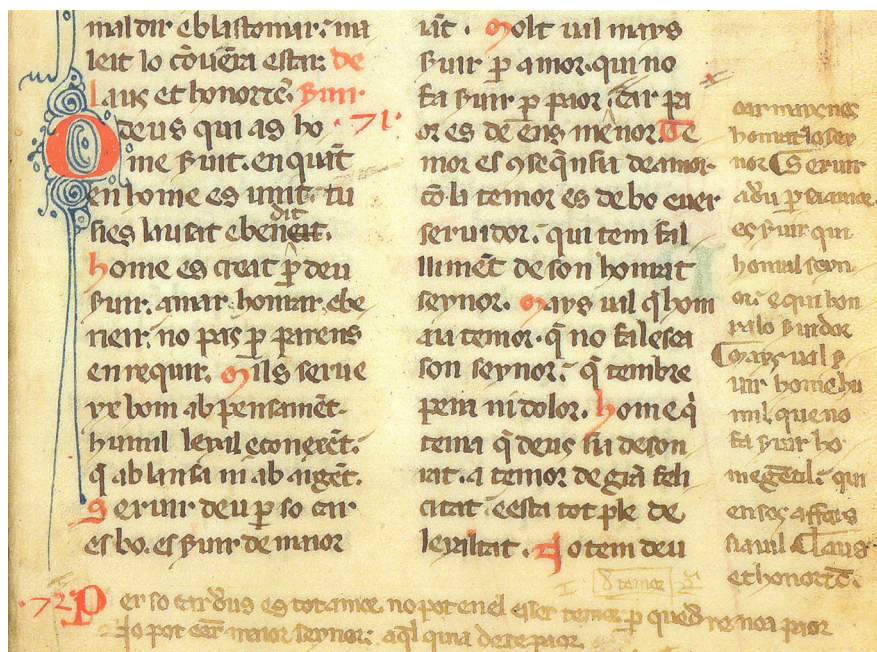 maldir e blastomar: ma
leit lo cōuēra estar: de
laus et honor tē. Seruir.
O deus qui as ho · 71 ·
me s̄uit. en quāt
en home es unit. tu
sies lausat e beneit.
dit
home es creat p̄ deu
s̄uir. amar. honrar. e be
neir. no pas p̄ parens
enrequir. Mils serue
yx hom ab pensamēt.
humil leyal e conexēt.
q̄ ab lansa ni ab argēt.
Seruir deu p̄ so car
es bo. es s̄uir de maior
uāt. Molt ual mays
s̄uir p̄ amor. qui no
fa s̄uir p̄ paor. car pa
or es de ēns menor. Te
mor es 9seq̄nsia de amor.
cō li temor es de bo e uer
seruidor. qui tem fal
limēt de son honrat
seynor. Mays ual q̄ hom
au temor. q̄ no falesca
son seynor. q̄ tembre
pena ni dolor. Home q̄
tema q̄ deus sia deson
rat. a temor de grā feli
citat. e esta tot ple de
leyaltat. No tem deu
car mays nes
honrat lo sey
nor Seruir
a deu p̄ sa amor
es s̄uir qui
honra lseyn
or: e qui hon
ra lo s̄uidor
Mays ual s̄
uir home hu
mil. que no
fa s̄uir ho
me gētil: qui
en sos affers
sia uil Laus
et honor tē.
δ temor
· 72 · Per so car deus es tot amor. no pot en el esser temor. p̄ que deu re no a paor
No pot eēr maior seynor: aq̄l qui na de re paor.